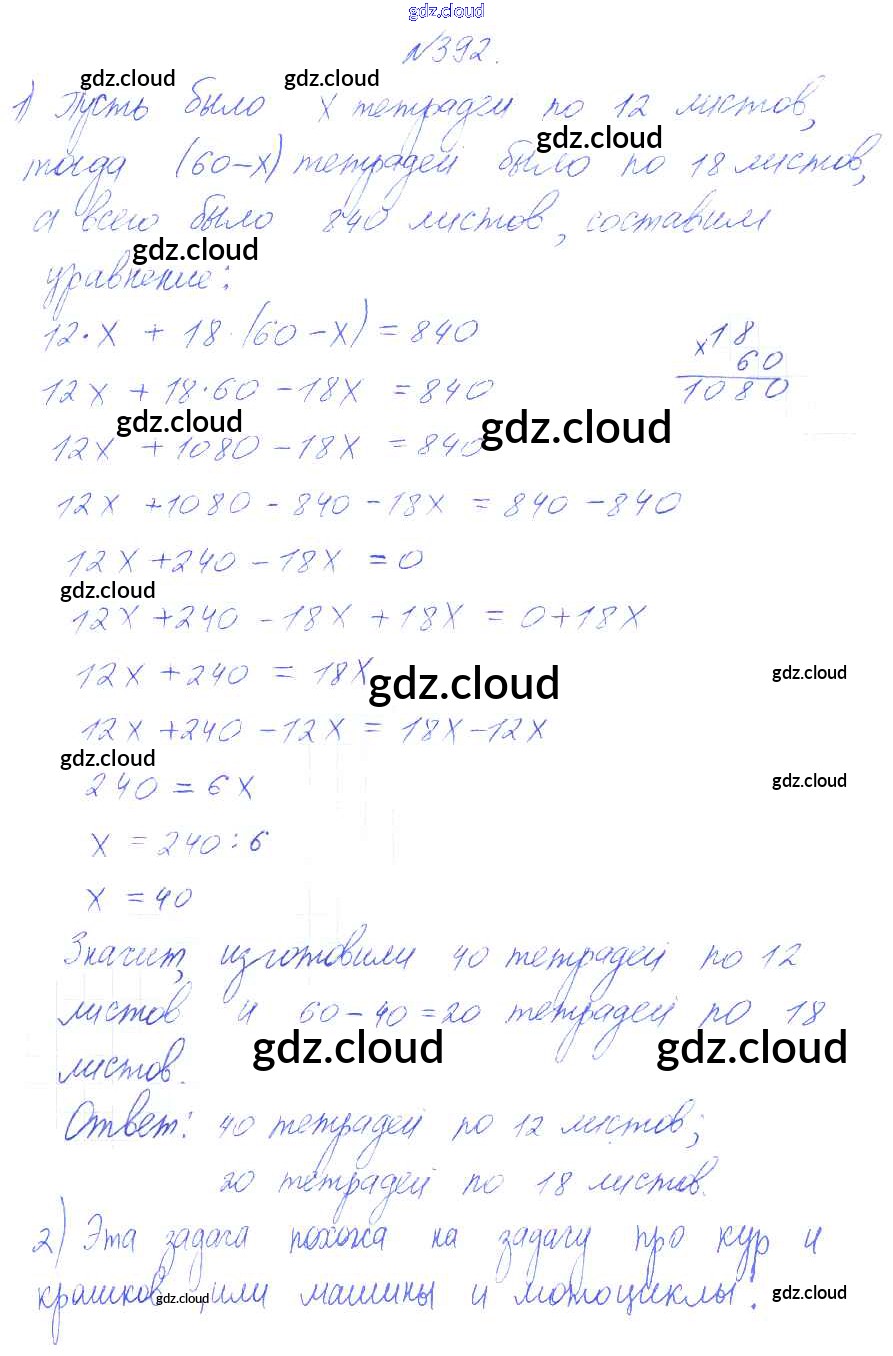 gdz.cloud
№392.
gdz.cloud gdz.cloud
1) Пусть было x тетрадей по 12 листов,
gdz.cloud
тогда (60-x) тетрадей было по 18 листов,
а всего было 840 листов, составим
gdz.cloud
уравнение:
12·x + 18·(60-x) = 840
x 18
60
1080
12x + 18·60 - 18x = 840
gdz.cloud gdz.cloud
12x + 1080 - 18x = 840
12x + 1080 - 840 - 18x = 840 - 840
12x + 240 - 18x = 0
gdz.cloud
12x + 240 - 18x + 18x = 0 + 18x
12x + 240 = 18x
gdz.cloud gdz.cloud
12x + 240 - 12x = 18x - 12x
gdz.cloud gdz.cloud
240 = 6x
x = 240 : 6
x = 40
Значит, изготовили 40 тетрадей по 12
листов и 60-40=20 тетрадей по 18
gdz.cloud gdz.cloud
листов.
Ответ: 40 тетрадей по 12 листов;
20 тетрадей по 18 листов.
2) Эта задача похожа на задачу про кур и
кроликов, или машины и мотоциклы.
gdz.cloud gdz.cloud